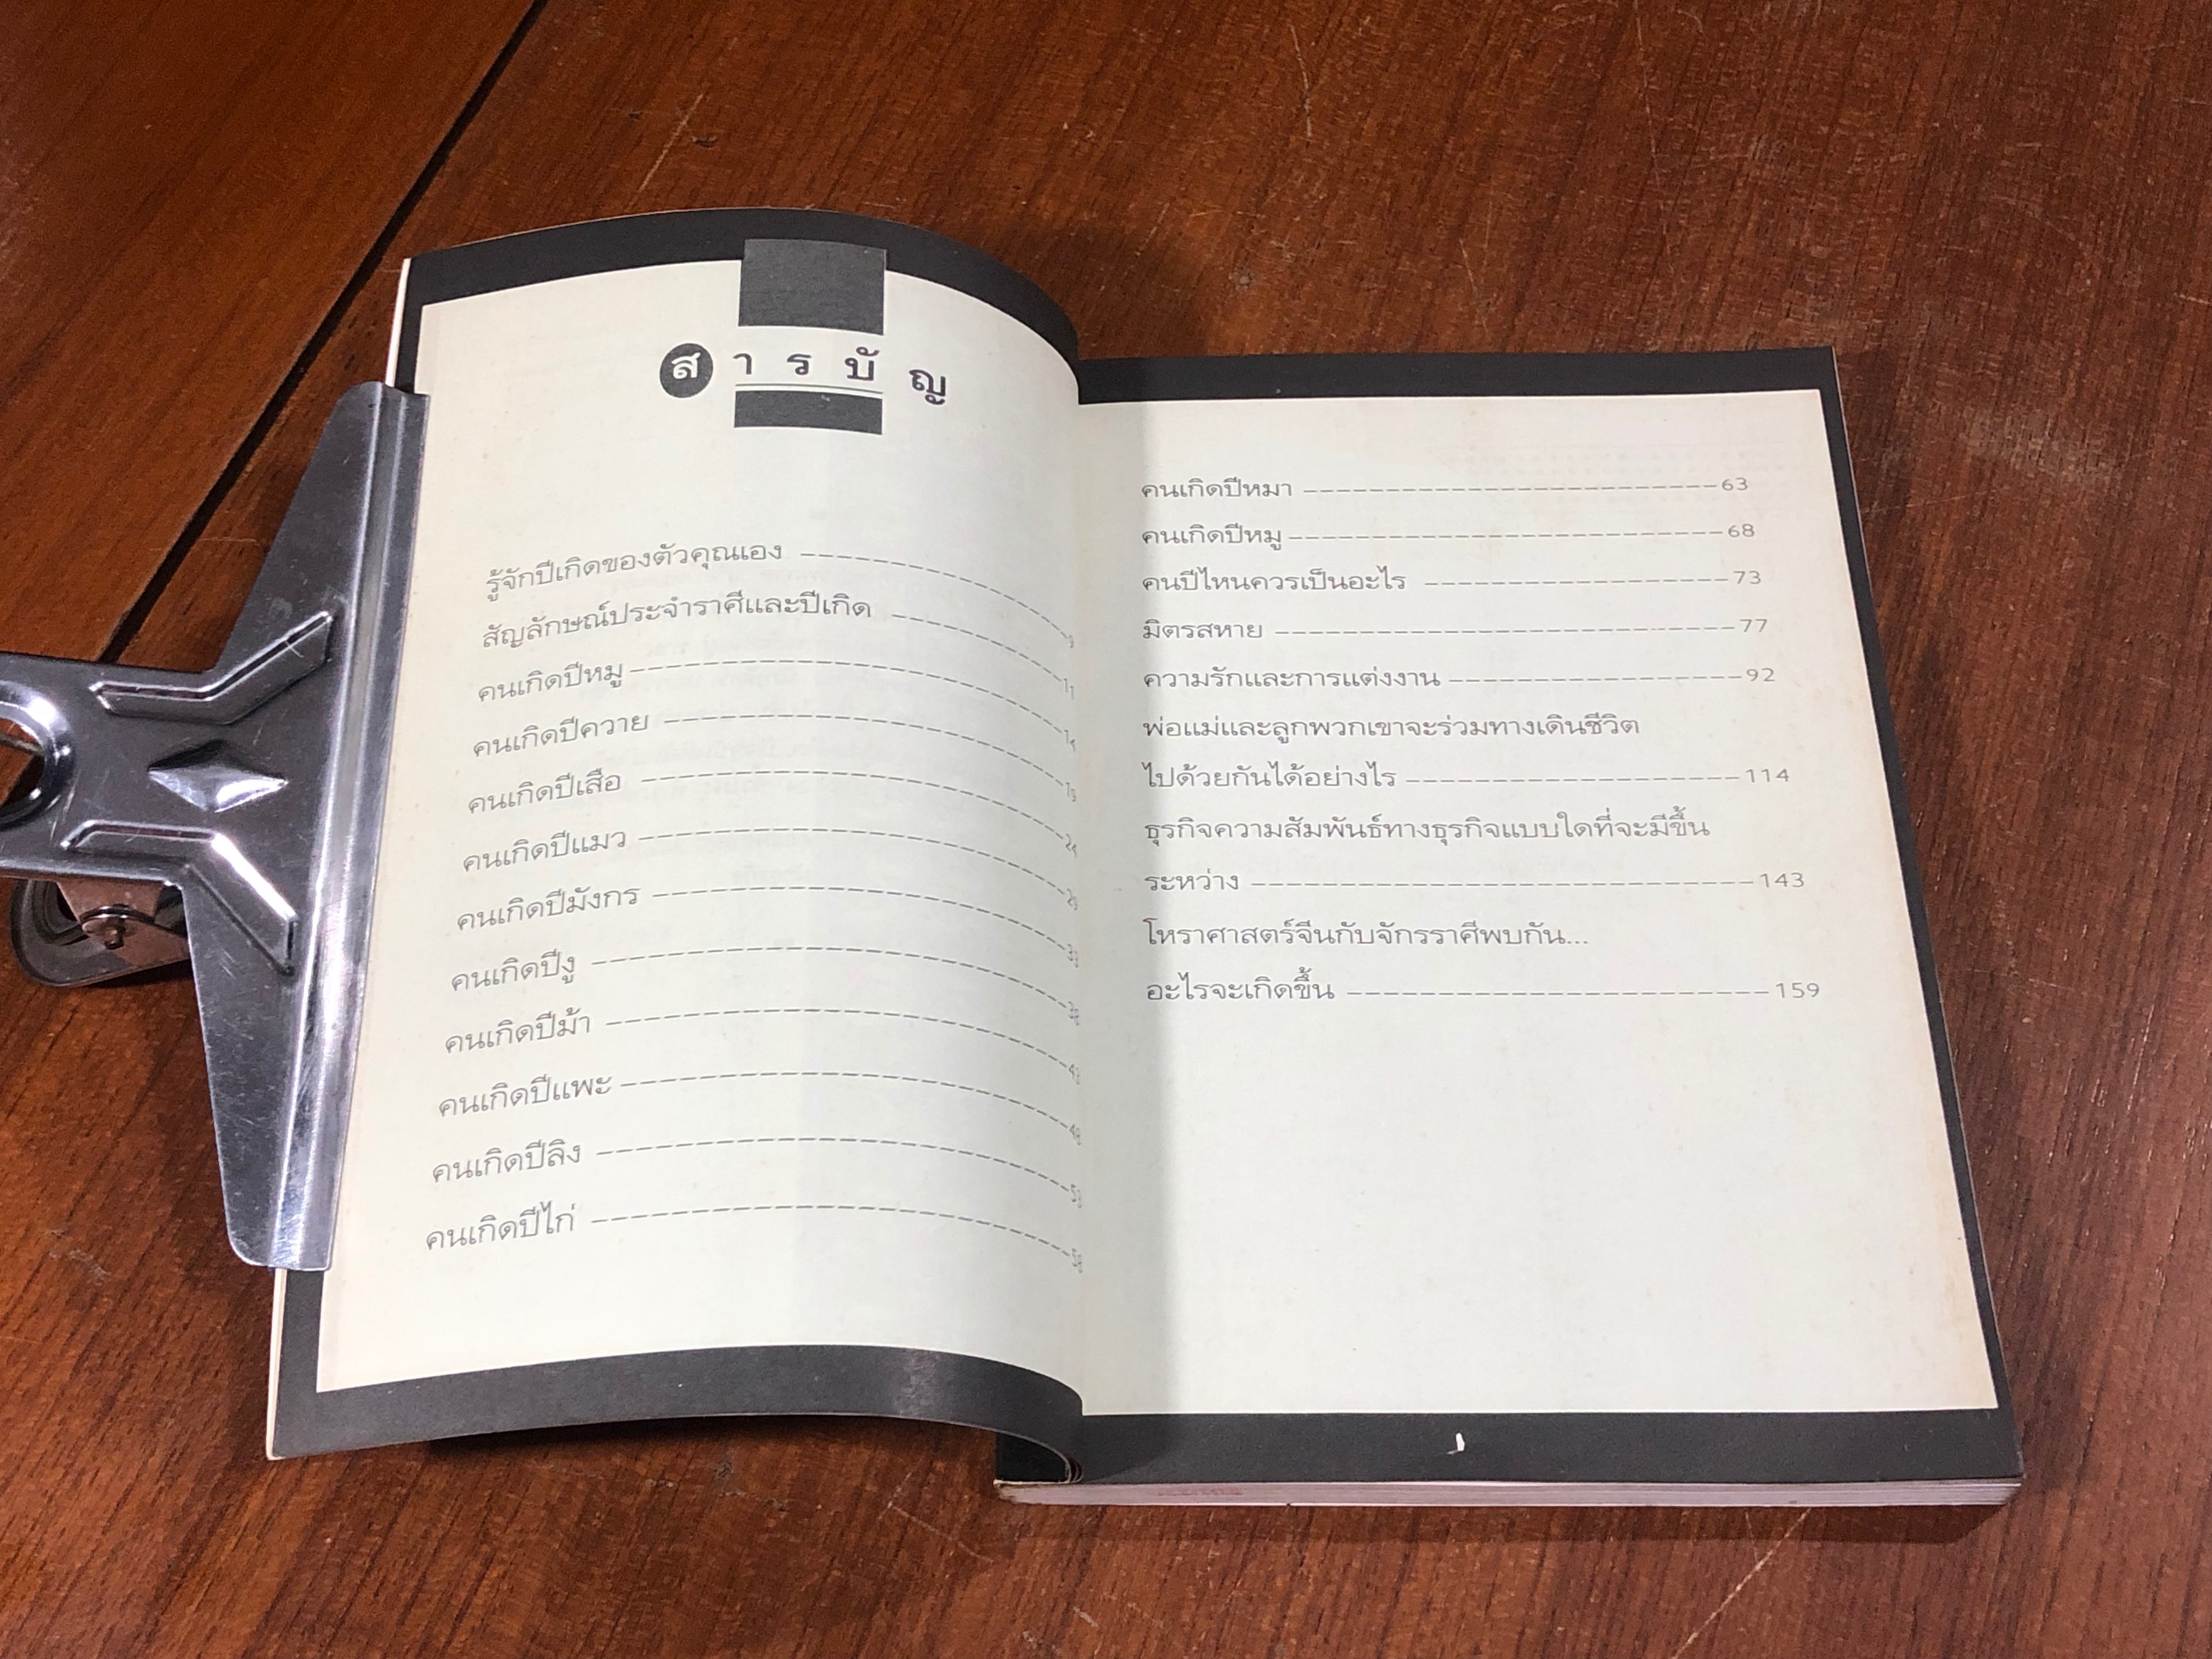 สารบัญ
รู้จักปีเกิดของตัวคุณเอง ---------------- 9
สัญลักษณ์ประจำราศีและปีเกิด ------------ 11
คนเกิดปีหมู ---------------------------- 14
คนเกิดปีควาย -------------------------- 19
คนเกิดปีเสือ --------------------------- 24
คนเกิดปีแมว --------------------------- 29
คนเกิดปีมังกร --------------------------
คนเกิดปีงู ------------------------------
คนเกิดปีม้า ---------------------------- 43
คนเกิดปีแพะ --------------------------- 48
คนเกิดปีลิง ---------------------------- 53
คนเกิดปีไก่ ---------------------------- 58
คนเกิดปีหมา --------------------------- 63
คนเกิดปีหมู ---------------------------- 68
คนปีไหนควรเป็นอะไร ------------------- 73
มิตรสหาย ----------------------------- 77
ความรักและการแต่งงาน ------------------ 92
พ่อแม่และลูกพวกเขาจะร่วมทางเดินชีวิต
ไปด้วยกันได้อย่างไร --------------------- 114
ธุรกิจความสัมพันธ์ทางธุรกิจแบบใดที่จะมีขึ้น
ระหว่าง ------------------------------- 143
โหราศาสตร์จีนกับจักรราศีพบกัน...
อะไรจะเกิดขึ้น -------------------------- 159